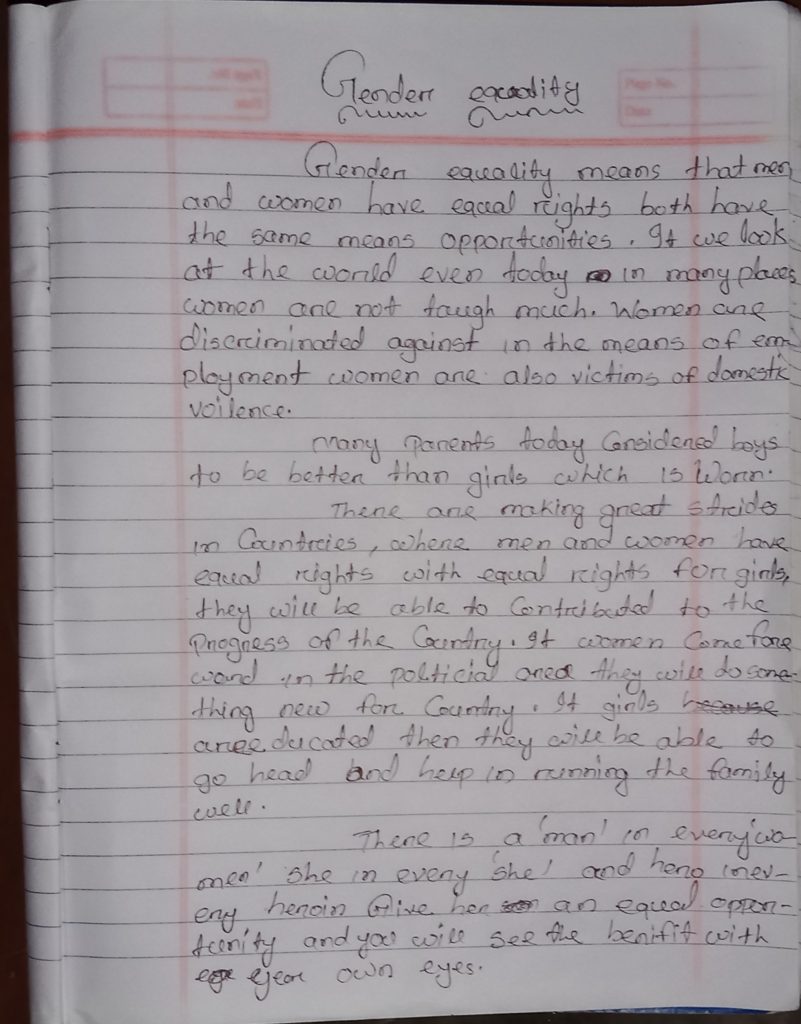 Gender equality
Gender equality means that men
and women have equal rights both have
the same means opportunities. If we look
at the world even today in many places
women are not taugh much. Women are
discriminated against in the means of em
ployment women are also victims of domestic
voilence.
Many parents today Considered boys
to be better than girls which is Worn.
There are making great strides
in Countries, where men and women have
equal rights with equal rights for girls,
they will be able to Contributed to the
Progress of the Country. If women Come fore
ward in the politicial area they will do some-
thing new for Country. If girls because
are educated then they will be able to
go head and help in running the family
well.
There is a 'man' in every 'wo-
men' 'she in every 'she' and hero inev-
ery heroin Give her an equal oppor-
tunity and you will see the benifit with
your own eyes.